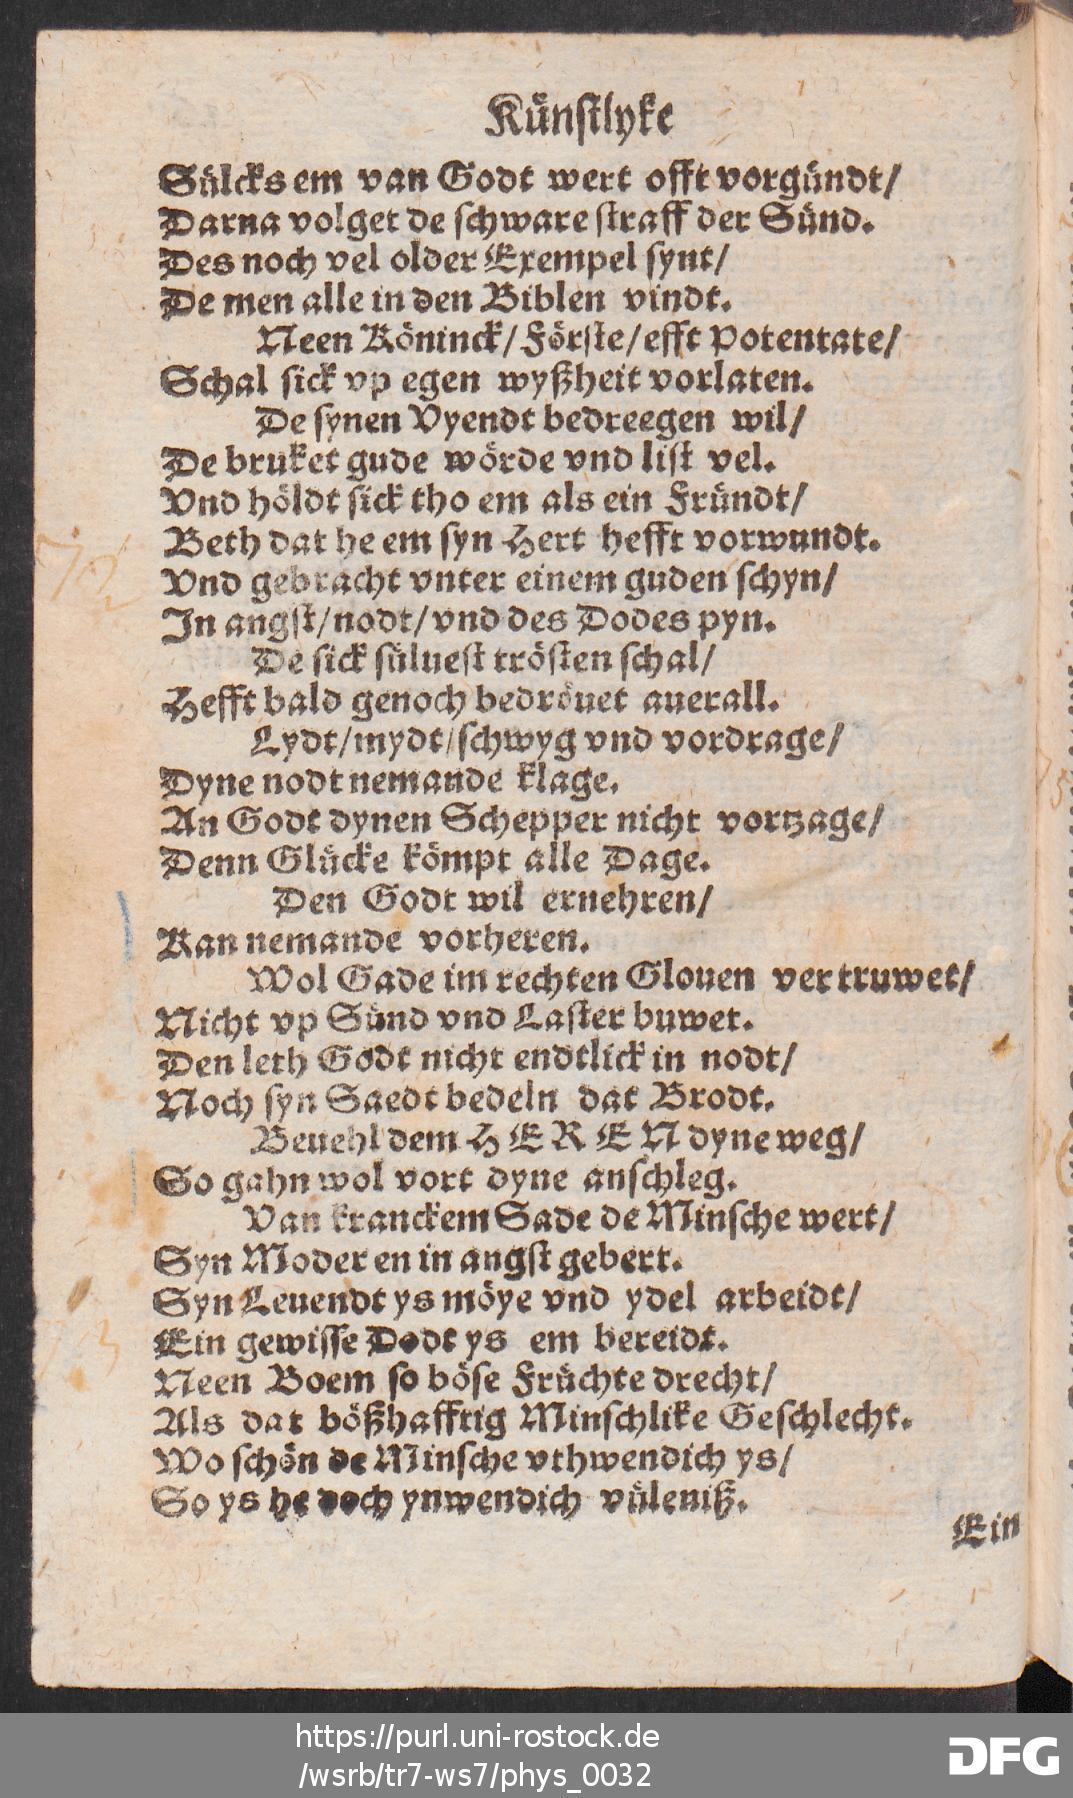 Künstlyke
Sülcks em van Godt wert offt vorgündt/
Darna volget de schware straff der Sünd.
Des noch vel older Exempel synt/
De men alle in den Biblen vindt.
Neen Köninck/ Förste/ efft Potentate/
Schal sick vp egen wyßheit vorlaten.
De synen Vyendt bedreegen wil/
De bruket gude wörde vnd list vel.
Vnd höldt sick tho em als ein Fründt/
Beth dat he em syn Hert hefft vorwundt.
Vnd gebracht vnter einem guden schyn/
In angst/ nodt/ vnd des Dodes pyn.
De sick süluest trösten schal/
Hefft bald genoch bedröuet auerall.
Lydt/ mydt/ schwyg vnd vordrage/
Dyne nodt nemande klage.
An Godt dynen Schepper nicht vortzage/
Denn Glücke kömpt alle Dage.
Den Godt wil ernehren/
Kan nemande vorheren.
Wol Gade im rechten Glouen vertruwet/
Nicht vp Sünd vnd Laster buwet.
Den leth Godt nicht endtlick in nodt/
Noch syn Saedt bedeln dat Brodt.
Beuehl dem HEREN dyne weg/
So gahn wol vort dyne anschleg.
Van kranckem Sade de Minsche wert/
Syn Moder en in angst gebert.
Syn Leuendt ys möye vnd ydel arbeidt/
Ein gewisse Dodt ys em bereidt.
Neen Boem so böse Früchte drecht/
Als dat bößhafftig Minschlike Geschlecht.
Wo schön de Minsche vthwendich ys/
So ys he doch ynwendich vüleniß.
Ein
https://purl.uni-rostock.de
/wsrb/tr7-ws7/phys_0032
DFG